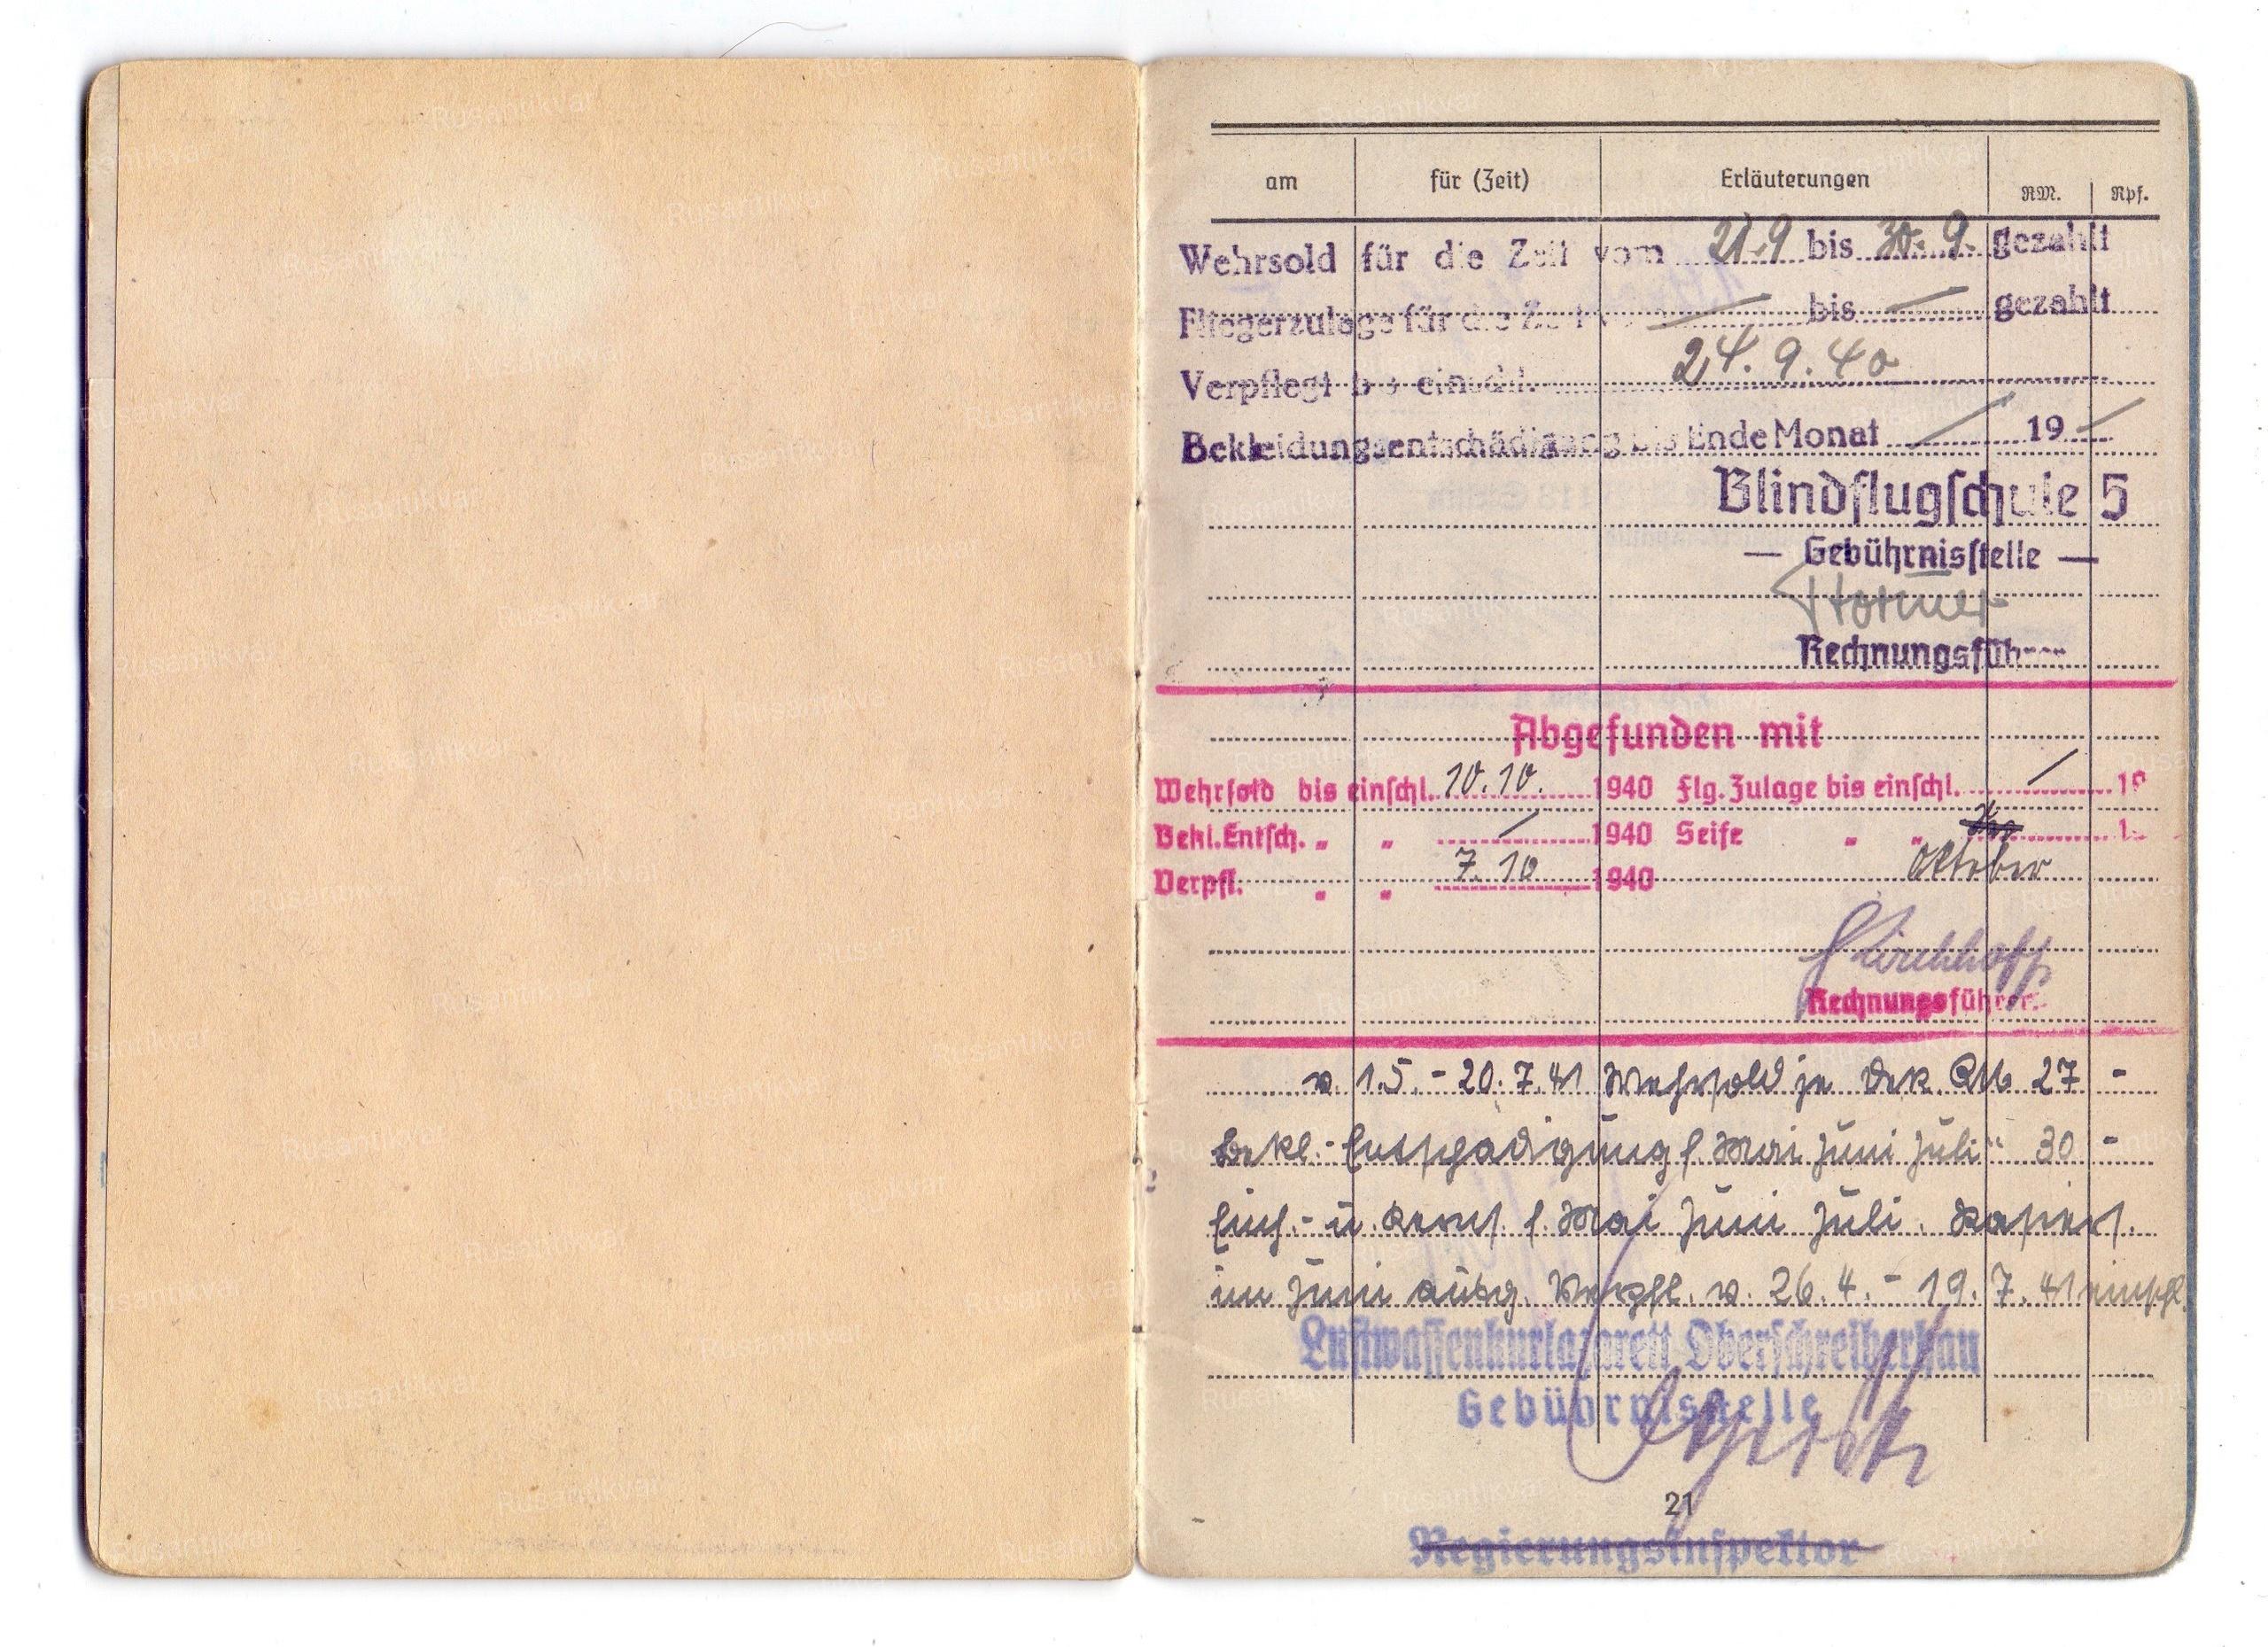 am für (Zeit) Erläuterungen RM. Rpf.
Wehrsold für die Zeit vom 21.9 bis 30.9. gezahlt
Fliegerzulage für die Zeit — bis — gezahlt
Verpflegt bis einschl. 24.9.40
Bekleidungsentschädigung bis Ende Monat / 19 /
Blindflugschule 5
— Gebührnisstelle —
Rechnungsführer
Abgefunden mit
Wehrsold bis einschl. 10.10. 1940 Flg. Zulage bis einschl. / 19
Bekl. Entsch. „ „ / 1940 Seife „ „ 1
Verpfl. „ „ 7.10 1940 Oktober
Kirchhoff
Rechnungsführer.
v. 1.5. - 20.7.41 Wehrsold je Dek. RM 27 -
Bekl.-Entschädigung f. Mai Juni Juli " 30 -
f. Mai Juni Juli. Rasiers.
im Juni ausg. Verpfl. v. 26.4. - 19.7.41 einschl.
Luftwaffenkurlazarett Oberschreiberhau
Gebührnisstelle
21
Regierungsinspektor